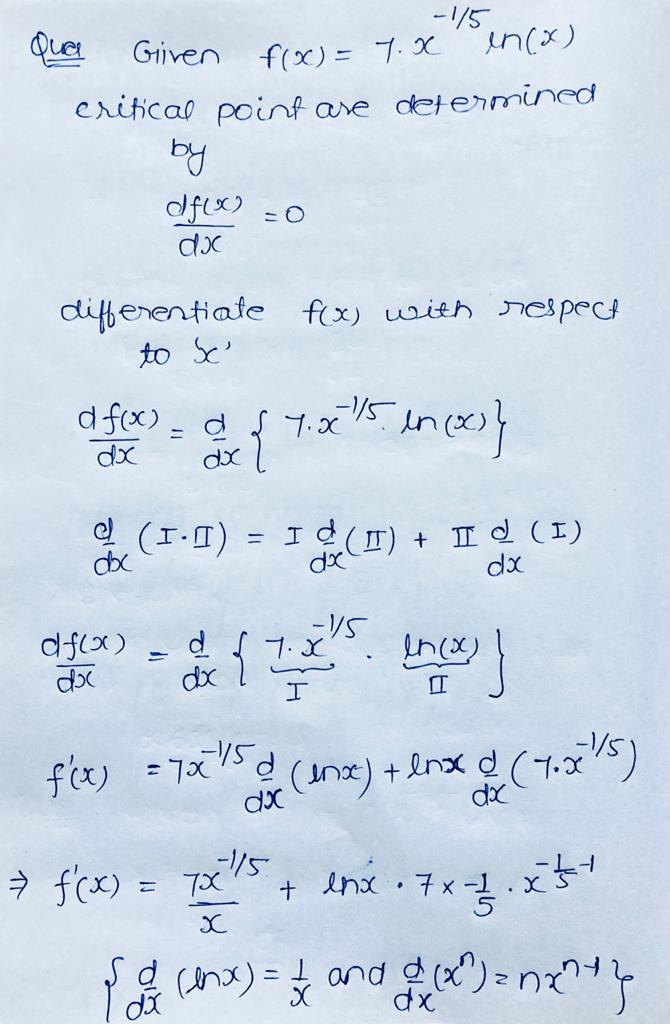 Ques Given f(x) = 7.x^{-1/5} ln(x)
critical point are determined
by
df(x)/dx = 0
differentiate f(x) with respect
to 'x'
df(x)/dx = d/dx { 7.x^{-1/5}. ln(x)}
d/dx (I.II) = I d/dx (II) + II d/dx (I)
df(x)/dx = d/dx { 7.x^{-1/5} . ln(x) }
I II
f'(x) = 7x^{-1/5} d/dx (lnx) + lnx d/dx (7.x^{-1/5})
⇒ f'(x) = 7x^{-1/5}/x + lnx . 7 x -1/5 . x^{-1/5-1}
{ d/dx (lnx) = 1/x and d/dx (x^n) = nx^{n-1} }